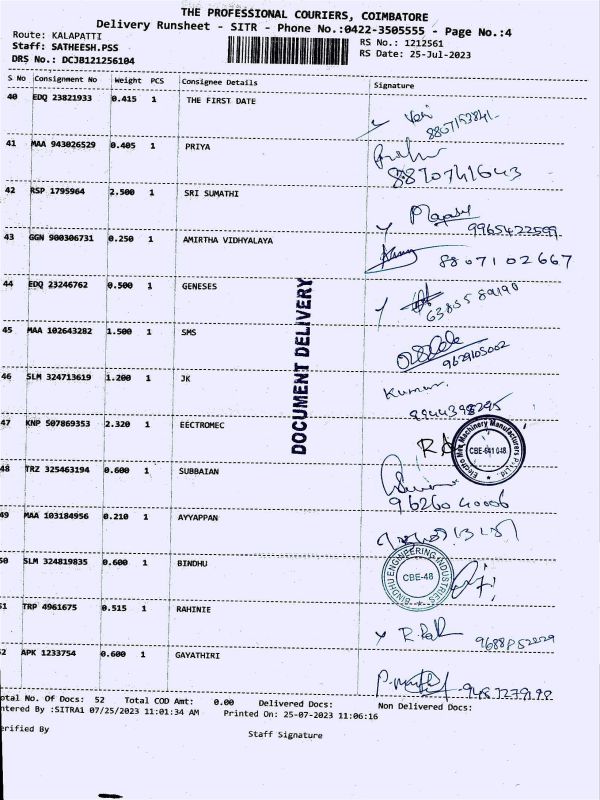 THE PROFESSIONAL COURIERS, COIMBATORE
Delivery Runsheet - SITR - Phone No.:0422-3505555 - Page No.:4
Route: KALAPATTI
RS No.: 1212561
Staff: SATHEESH.PSS
RS Date: 25-Jul-2023
DRS No.: DCJB121256104
S No Consignment No Weight PCS Consignee Details Signature
40 EDQ 23821933 0.415 1 THE FIRST DATE
41 MAA 943026529 0.405 1 PRIYA
8870741643
42 RSP 1795964 2.500 1 SRI SUMATHI
9965422599
43 GGN 900306731 0.250 1 AMIRTHA VIDHYALAYA
8807102667
44 EDQ 23246762 0.500 1 GENESES
45 MAA 102643282 1.500 1 SMS
9629105002
46 SLM 324713619 1.200 1 JK
Kumar.
9944398295
47 KNP 507869353 2.320 1 EECTROMEC
48 TRZ 325463194 0.600 1 SUBBAIAN
9626040006
49 MAA 103184956 0.210 1 AYYAPPAN
50 SLM 324819835 0.600 1 BINDHU
BINDHU ENGINEERING INDUSTRIES
CBE-48
51 TRP 4961675 0.515 1 RAHINIE
52 APK 1233754 0.600 1 GAYATHIRI
DOCUMENT DELIVERY
otal No. Of Docs: 52 Total COD Amt: 0.00 Delivered Docs: Non Delivered Docs:
ntered By :SITRA1 07/25/2023 11:01:34 AM Printed On: 25-07-2023 11:06:16
erified By Staff Signature